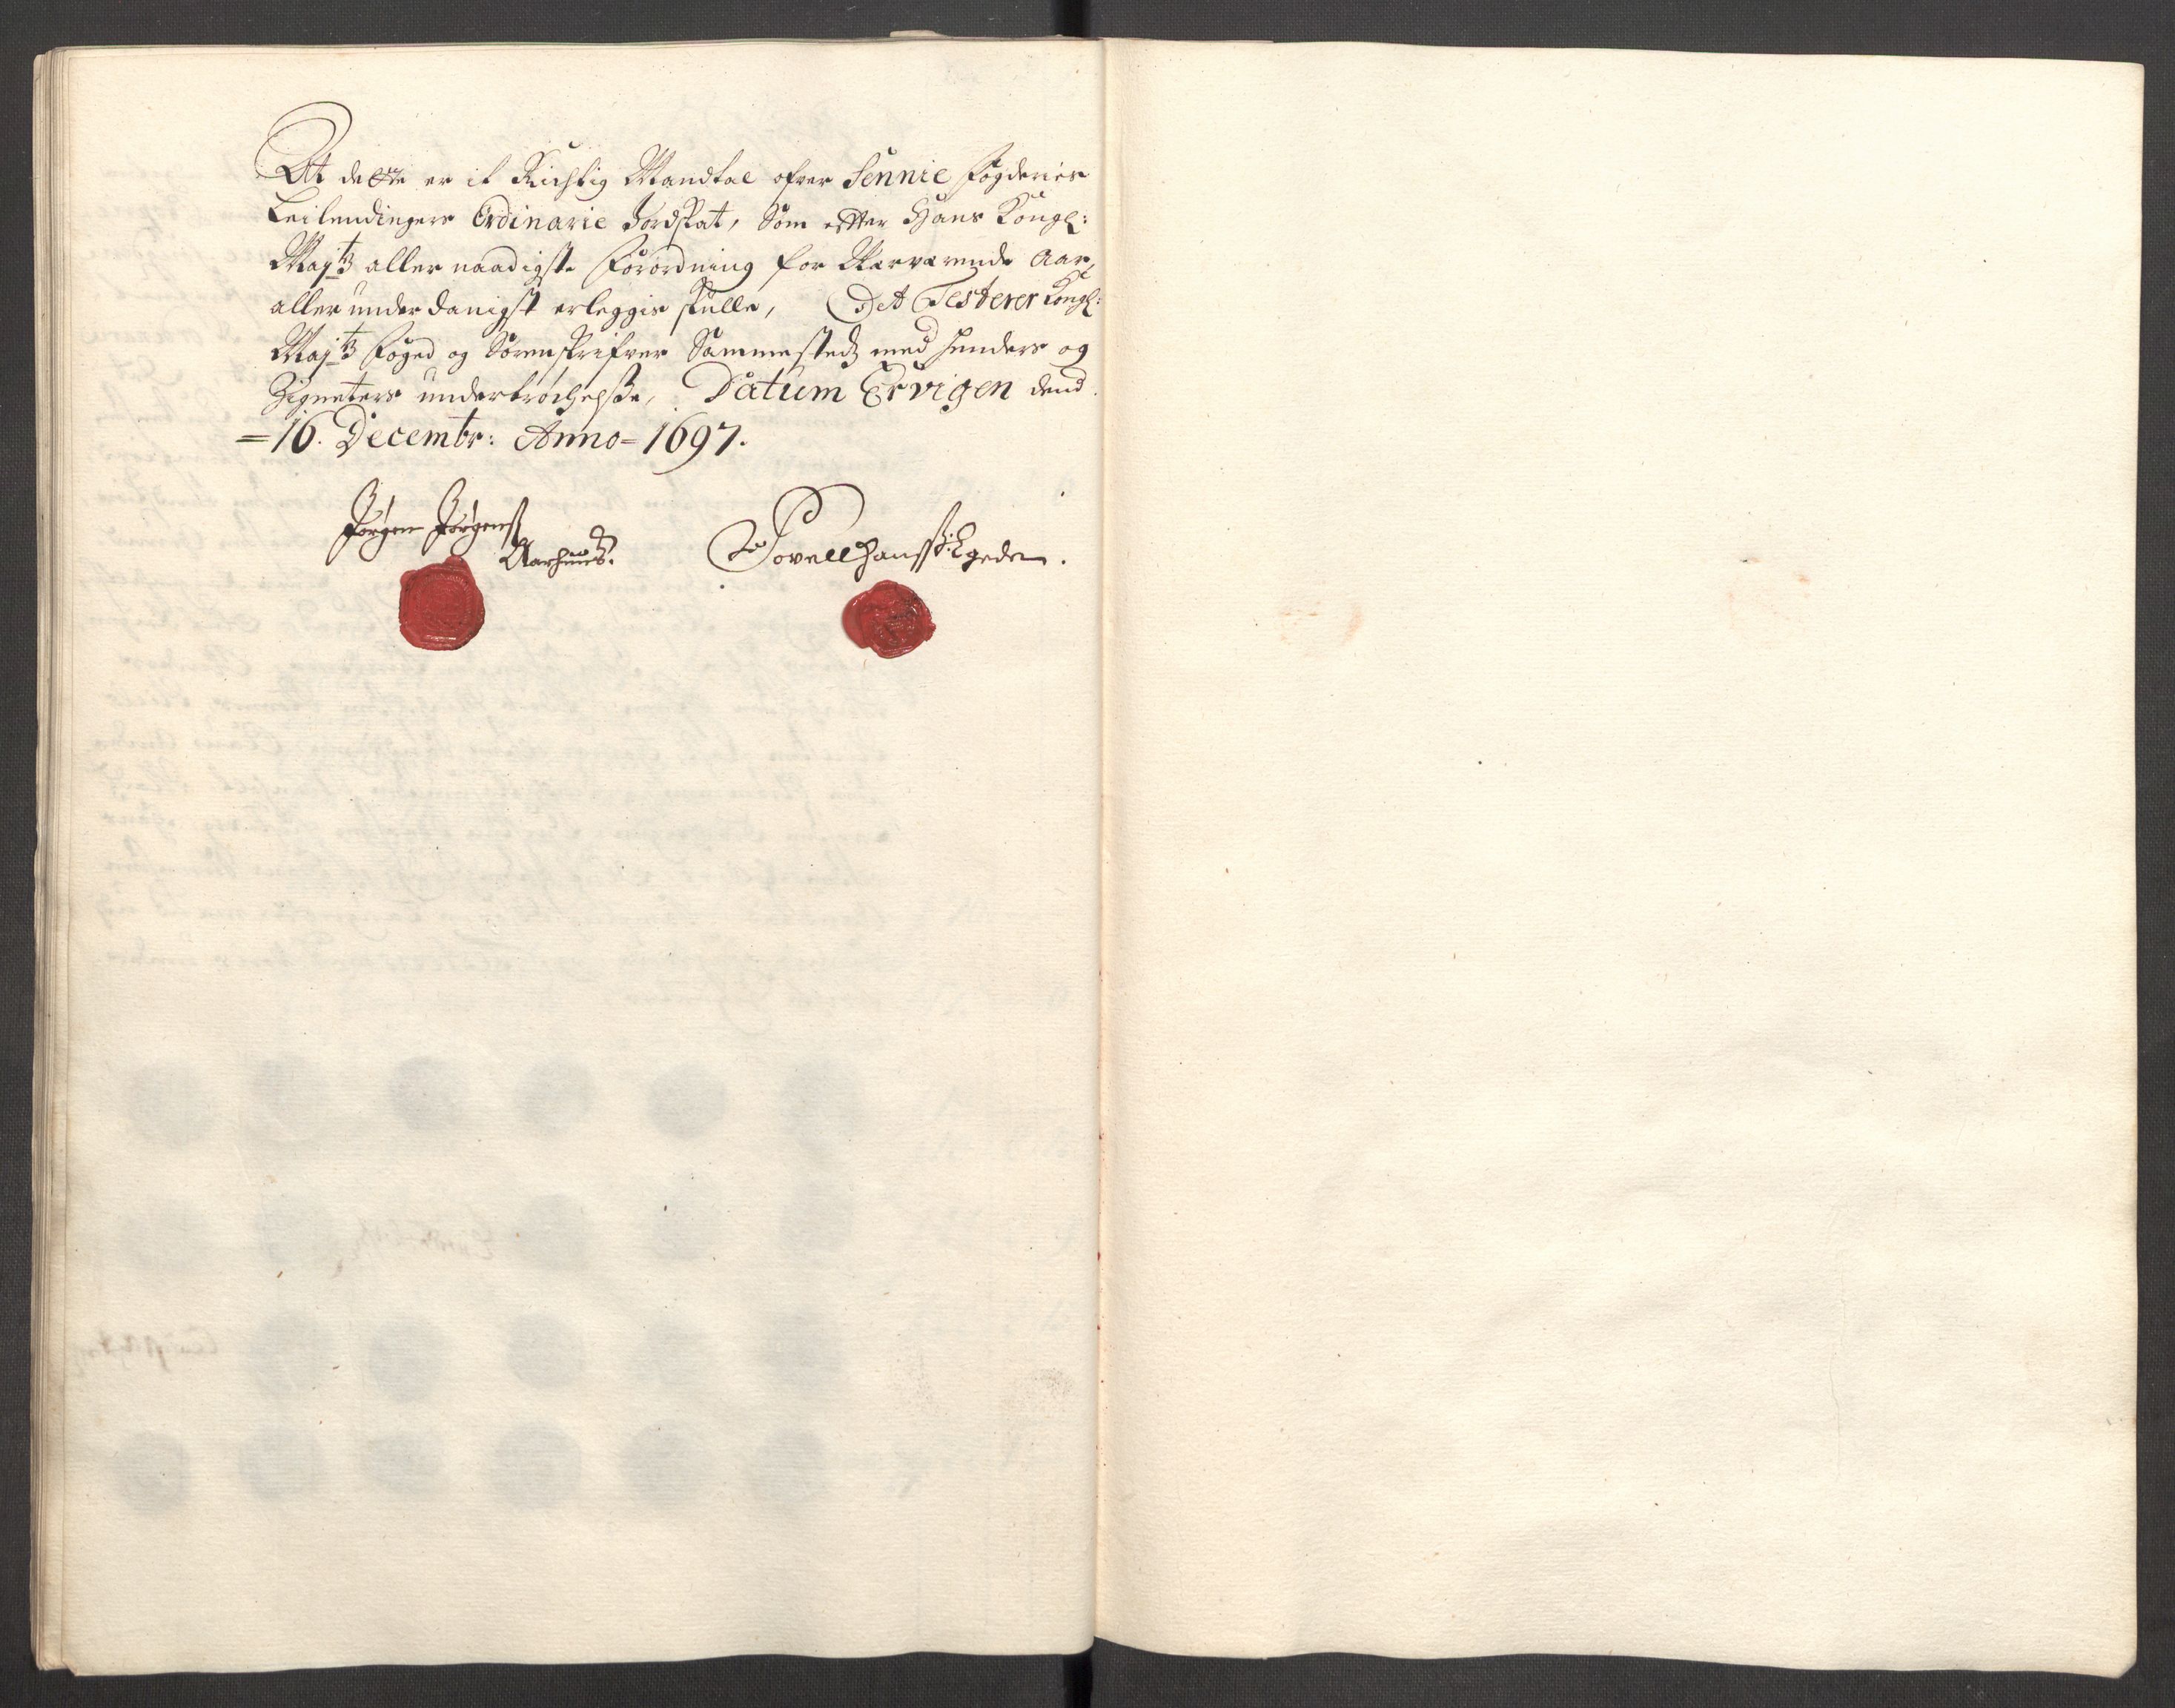 At dette er it Richtig Mandtal ofver Sennie fogderies
Leilendingers Ordinarie Jordskat, Som efter Hans Kongl:
Maytz allernaadigste forordning for Nærværende Aar,
allerunderdanigst erleggis skulle, Det Testerer Kongl:
Maytz foged og Sorenskrifver Sammestedz med henders og
Zigneters undertrychelsse, Datum Ervigen dend
=16. Decembr: Anno=1697.
Jørgen Jørgenss
Aarhuus.
Povell Hanss: Egede.